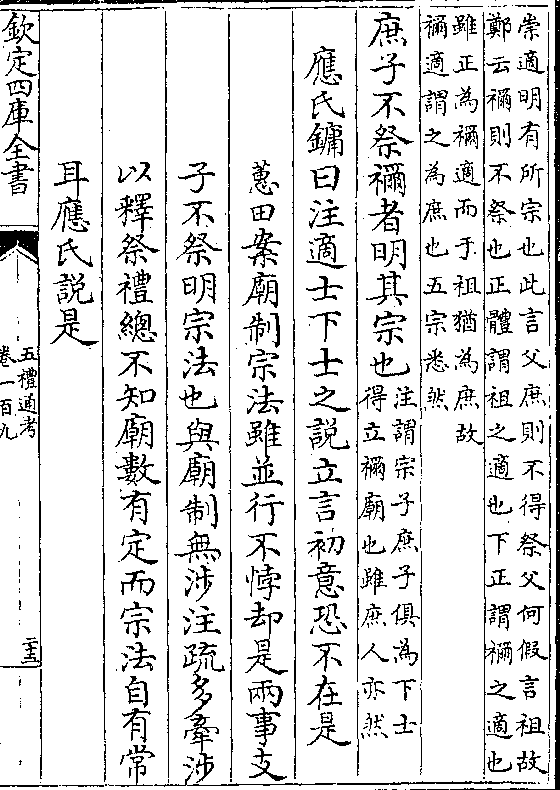 崇適明有所宗也此言父庶則不得祭父何假言祖故
鄭云禰則不祭也正體謂祖之適也下正謂禰之適也
雖正為禰適而于祖猶為庶故
禰適謂之為庶也五宗悉然
庶子不祭禰者明其宗也
注謂宗子庶子俱為下士
得立禰廟也雖庶人亦然
應氏鏞曰注適士下士之說立言初意恐不在是
蕙田案廟制宗法雖並行不悖却是兩事支
子不祭明宗法也與廟制無涉注疏多牽涉
以釋祭禮總不知廟數有定而宗法自有常
耳應氏說是
欽定四庫全書
五禮通考
卷一百九
二十三